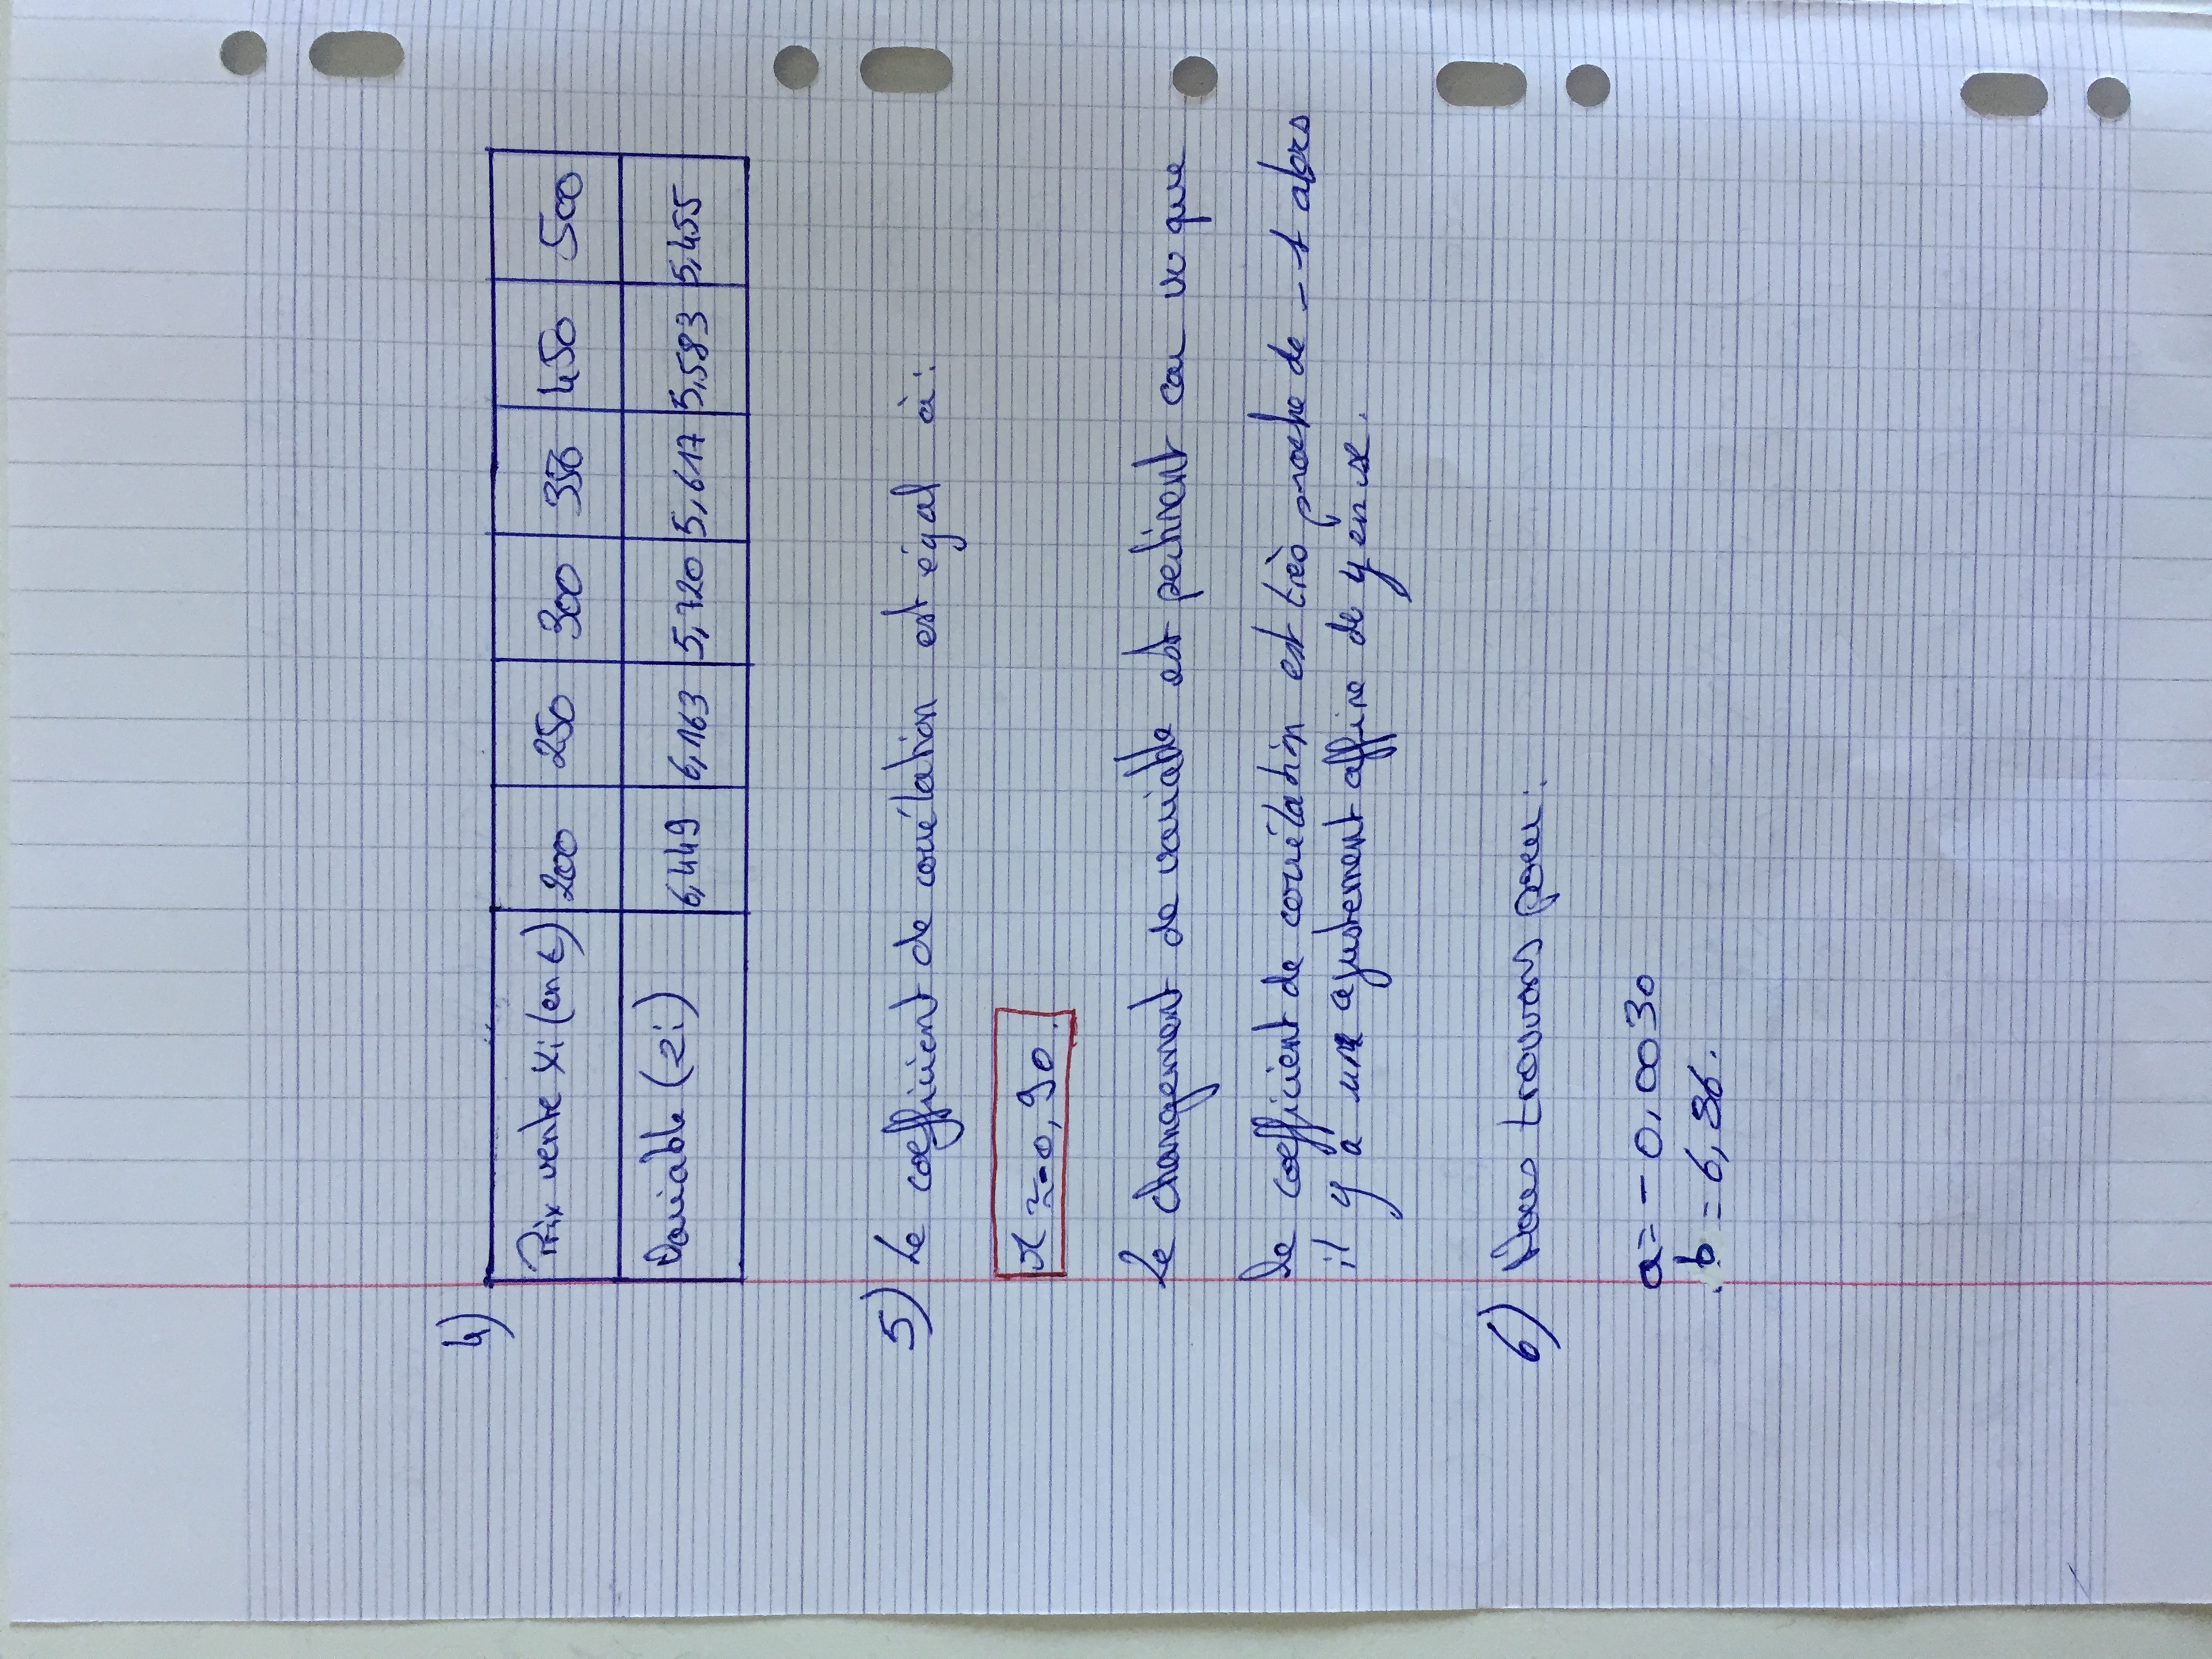 4)
Prix vente xi (en €) 200 250 300 350 450 500
Variable (zi) 6,449 6,163 5,720 5,617 5,583 5,455
5) Le coefficient de corrélation est égal à :
r ≈ -0,90.
Le changement de variable est pertinent car vu que
le coefficient de corrélation est très proche de -1 alors
il y a un ajustement affine de y en x.
6) Nous trouvons pour :
a = -0,0030
b = 6,86.